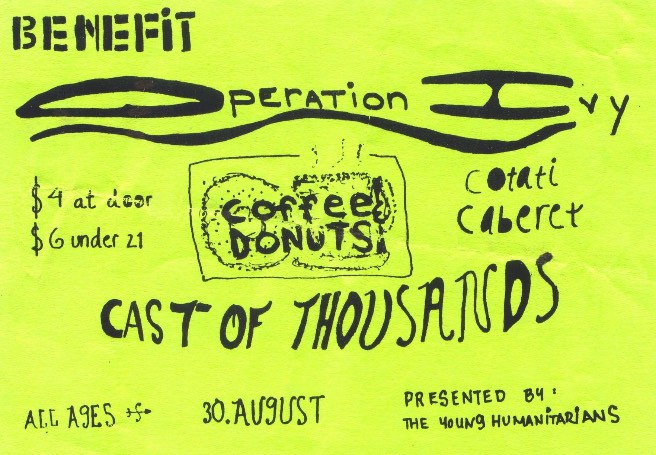 BENEFiT
OPERATION IVY
$4 at door
$6 under 21
Coffee &
DONUTS!
cotati
caberet
CAST OF THOUSANDS
ALL AGES
30. AUGUST
PRESENTED BY:
THE YOUNG HUMANITARIANS